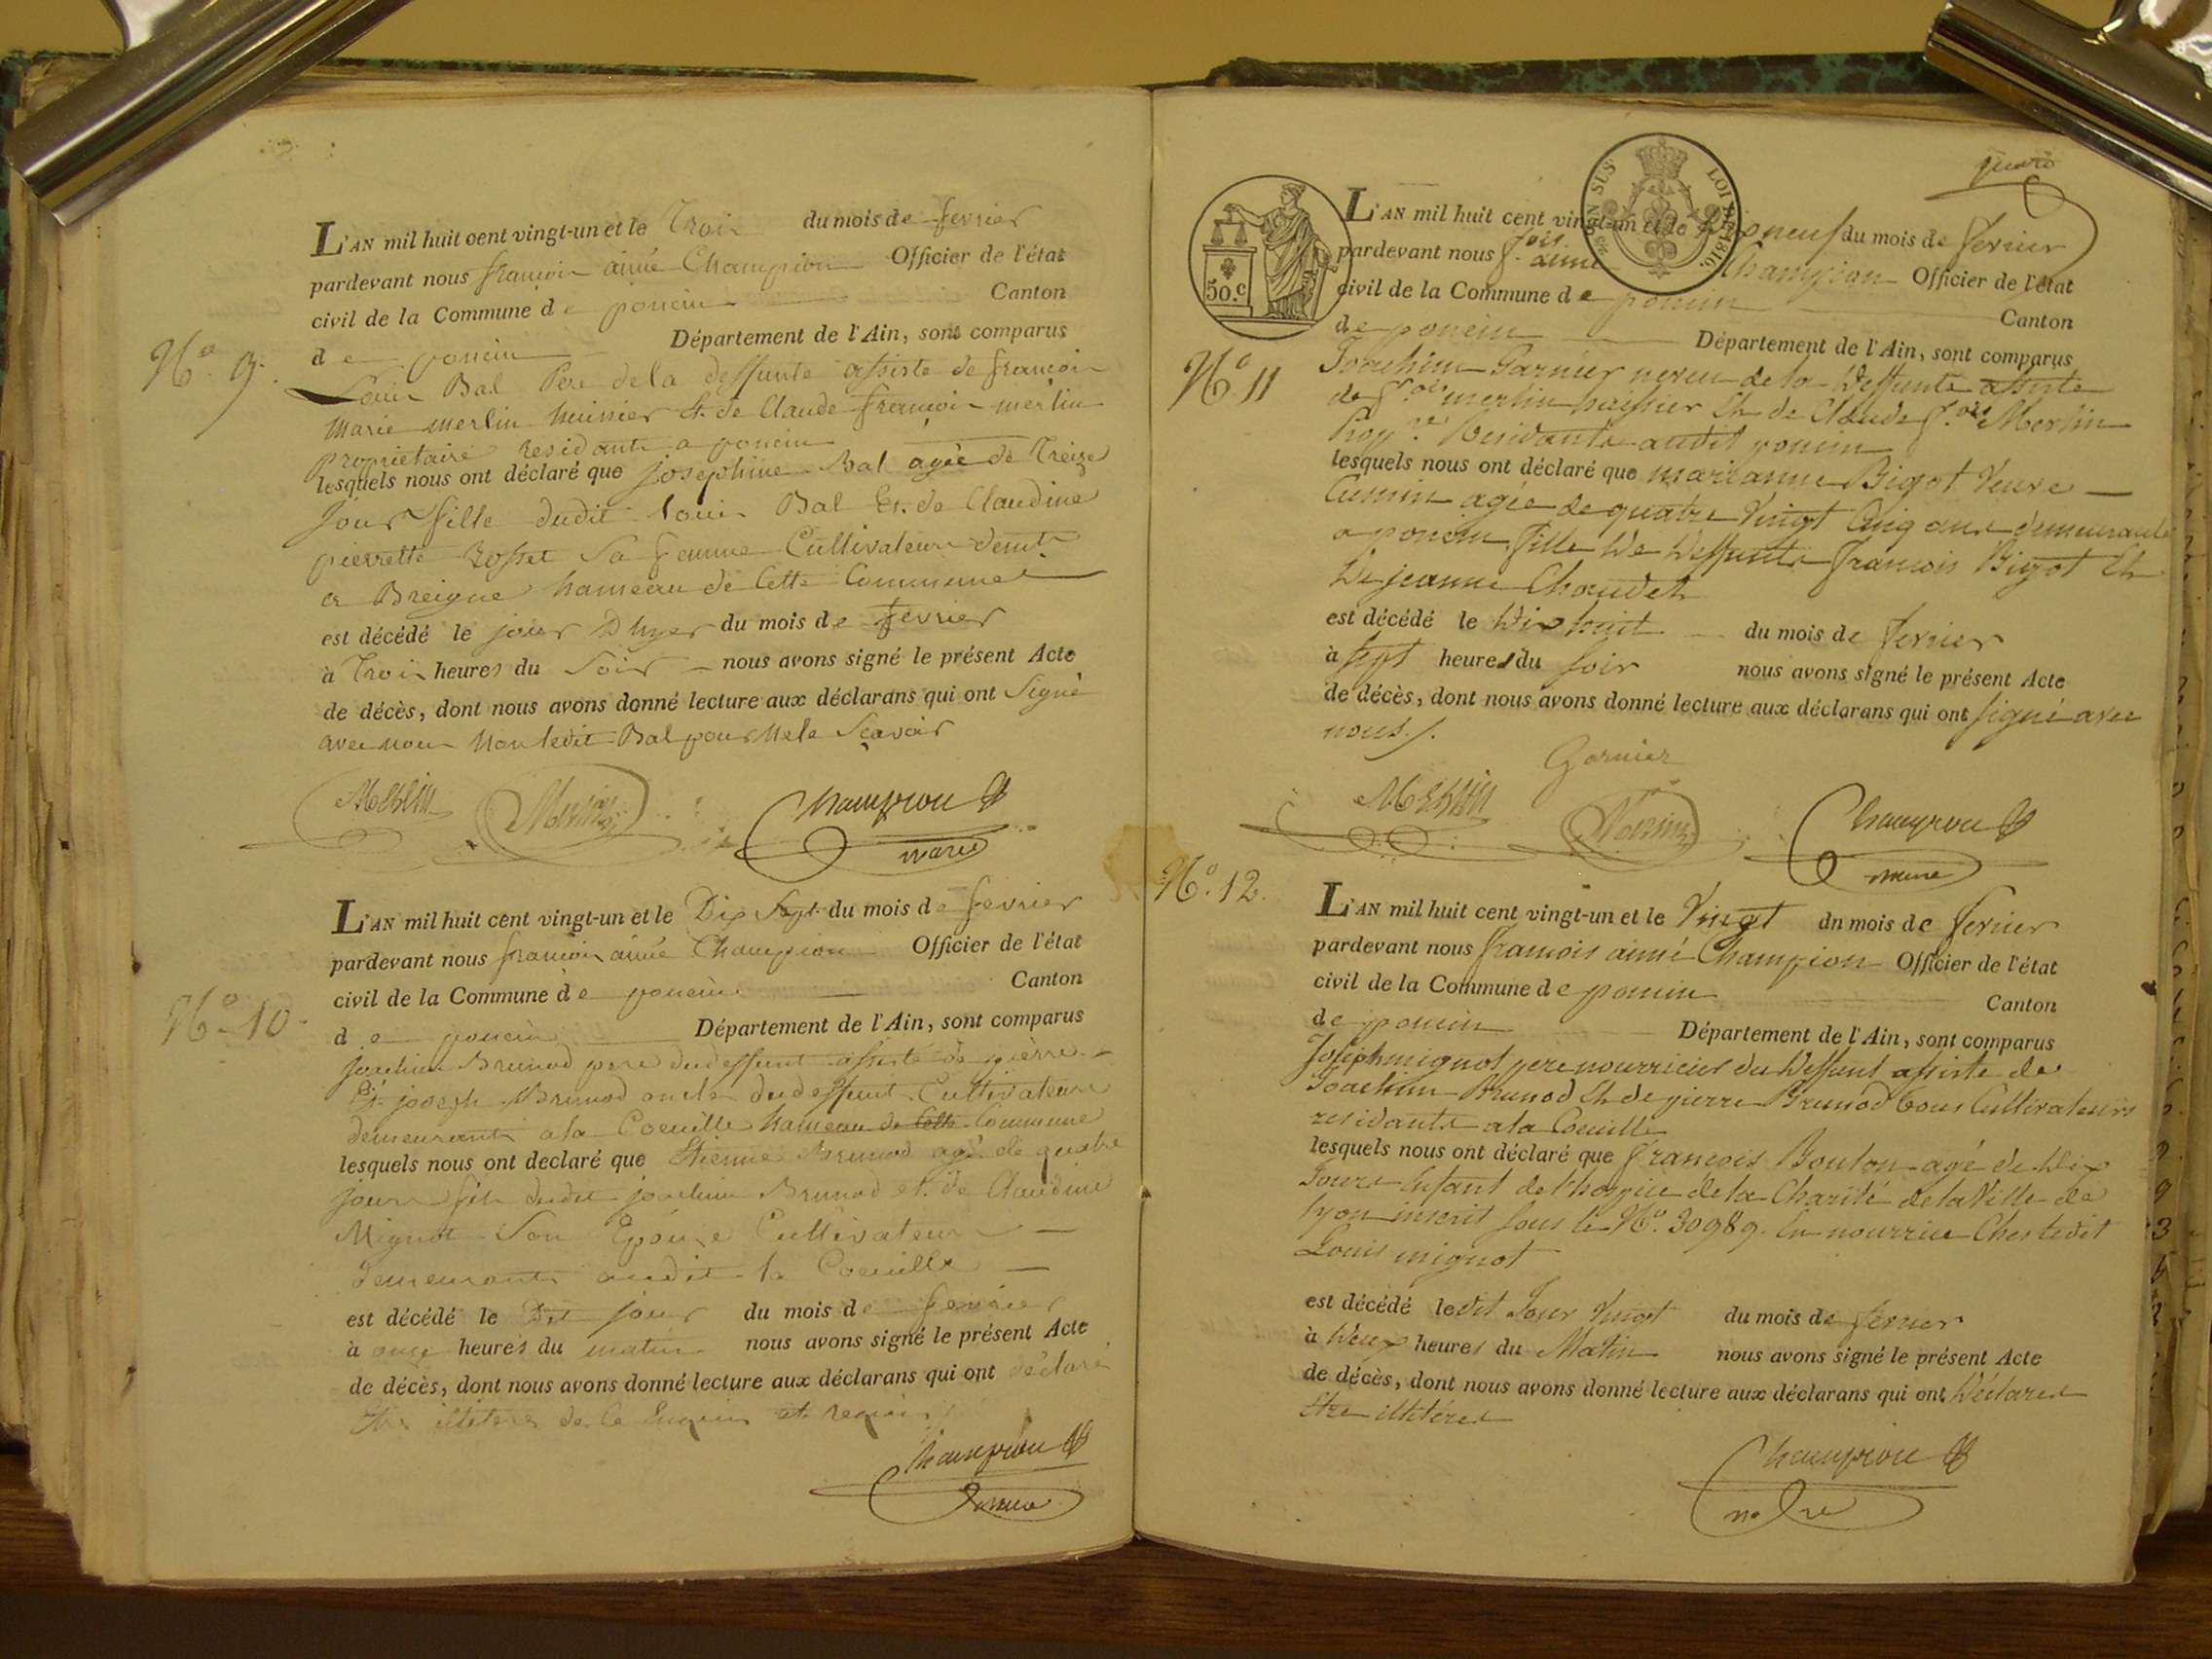 L'AN mil huit cent vingt-un et le Trois du mois de fevrier
pardevant nous francois aimé Champion Officier de l'état
civil de la Commune de poncin Canton
de poncin Département de l'Ain, sont comparus
N.o 9.
Louis Bal Pere de la deffunte assisté de francois
marie merlin huissier et de Claude francois merlin
propriétaire residants a poncin
lesquels nous ont déclaré que josephine Bal agée de Treize
jours fille dudit Louis Bal Et de Claudine
pierrette Rosset Sa femme Cultivateurs demt
a Breigne hameau de Cette Commune
est décédé le jour D'hyer du mois de fevrier
à Trois heures du Soir nous avons signé le présent Acte
de décès, dont nous avons donné lecture aux déclarans qui ont Signé
avec nous Non ledit Bal pour ne le Sçavoir
Merlin Merlin Champion
maire
L'AN mil huit cent vingt-un et le Dix Sept du mois de fevrier
pardevant nous francois aimé Champion Officier de l'état
civil de la Commune de poncin Canton
N.o 10.
de poncin Département de l'Ain, sont comparus
joachim Brunod pere du deffunt assisté de pierre
Et joseph Brunod oncle du deffunt Cultivateurs
demeurants a la Coeuille hameau de Cette Commune
lesquels nous ont declaré que Etienne Brunod agé de quatre
jours fils dudit joachim Brunod et de Claudine
Mignot Son Epouse Cultivateurs
demeurants audit la Coeuille
est décédé le Dit jour du mois de fevrier
à onze heures du matin nous avons signé le présent Acte
de décès, dont nous avons donné lecture aux déclarans qui ont déclaré
être illiteres de ce Enquis et requis
Champion
maire
quatre
TIMBRE
50.c
EN SUS
LOI DE 1816.
L'AN mil huit cent vingt-un et le Dix neuf du mois de fevrier
pardevant nous f.ois aimé Champion Officier de l'état
civil de la Commune de poncin
Canton
de poncin Département de l'Ain, sont comparus
N.o 11
Joachim Garnier neveu de la Deffunte assisté
de f.ois merlin huissier Et de Claude f.ois Merlin
Prop.re Residants audit poncin
lesquels nous ont déclaré que marianne Bigot Veuve
Cumin agée de quatre Vingt Cinq ans demeurante
a poncin fille De Deffunts francois Bigot Et
De jeanne Chaudet
est décédé le Dix huit du mois de fevrier
à Sept heures du Soir nous avons signé le présent Acte
de décès, dont nous avons donné lecture aux déclarans qui ont signé avec
nous /.
Garnier
Merlin Merlin Champion
maire
N.o 12.
L'AN mil huit cent vingt-un et le Vingt dn mois de fevrier
pardevant nous francois aimé Champion Officier de l'état
civil de la Commune de poncin
Canton
de poncin Département de l'Ain, sont comparus
Joseph mignot pere nourricier du Deffunt assisté de
Joachim Brunod Et de pierre Brunod tous Cultivateurs
residants a la Coeuille
lesquels nous ont déclaré que francois Bouton agé de Dix
Jours Enfant de l'hospice de la Charité de la Ville de
lyon inscrit sous le N.o 30989. En nourrice Ches ledit
Louis mignot
est décédé ledit Jour Vingt du mois de fevrier
à Deux heures du Matin nous avons signé le présent Acte
de décès, dont nous avons donné lecture aux déclarans qui ont Déclarés
Etre illitérés
Champion
maire